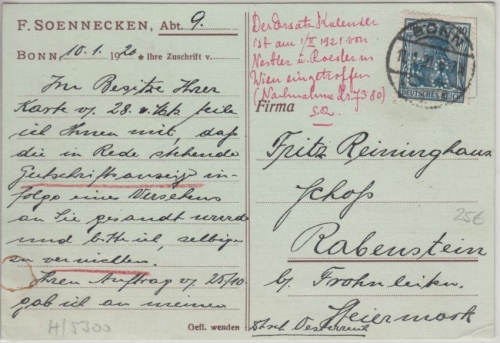 F. SOENNECKEN, Abt. 9.
BONN 10.1. 1920 * Ihre Zuschrift v.
Im Besitze Ihrer
Karte v. 28. v. Mts. teile
ich Ihnen mit, daß
die in Rede stehende
Gutschriftsanzeige in-
folge eines Versehens
an Sie gesandt wurde
und bitte ich, selbige
zu vernichten.
Ihren Auftrag v. 25/10
gab ich an meinen
H/5300
Gefl. wenden
Der Ersatz Kalender
ist am 1/II 1921 von
Nestler u. Roesler in
Wien eingetroffen
(Nachnahme Kr. 7380)
BONN
DEUTSCHES REICH
Firma
Fritz Reininghaus
Schoß
25€
Rabenstein
b/ Frohnleiten
Steiermark
Dtsch. Oesterreich